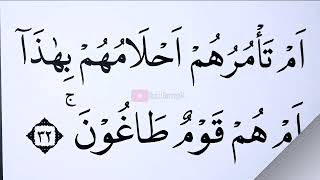 اَمْ تَأْمُرُهُمْ اَحْلَامُهُمْ بِهٰذَآ
اَمْ هُمْ قَوْمٌ طَاغُوْنَ ۚ ﴿٣٢﴾